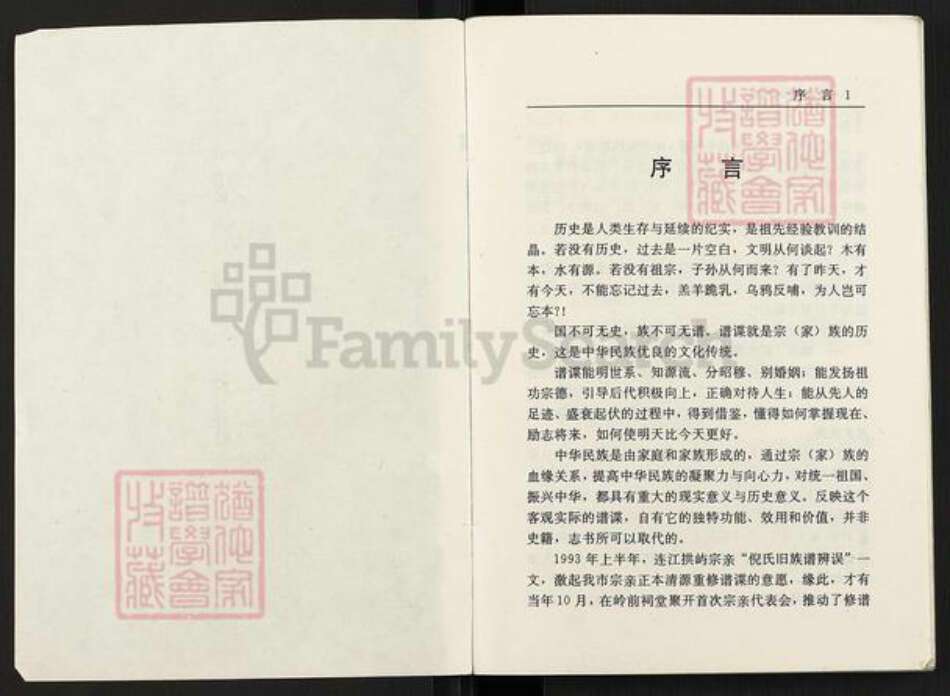 序 言 1
序 言
历史是人类生存与延续的纪实，是祖先经验教训的结
晶。若没有历史，过去是一片空白，文明从何谈起？木有
本，水有源。若没有祖宗，子孙从何而来？有了昨天，才
有今天，不能忘记过去，羔羊跪乳，乌鸦反哺，为人岂可
忘本？！
国不可无史，族不可无谱。谱谍就是宗（家）族的历
史，这是中华民族优良的文化传统。
谱谍能明世系、知源流、分昭穆、别婚姻；能发扬祖
功宗德，引导后代积极向上，正确对待人生；能从先人的
足迹、盛衰起伏的过程中，得到借鉴，懂得如何掌握现在、
励志将来，如何使明天比今天更好。
中华民族是由家庭和家族形成的，通过宗（家）族的
血缘关系，提高中华民族的凝聚力与向心力，对统一祖国、
振兴中华，都具有重大的现实意义与历史意义。反映这个
客观实际的谱谍，自有它的独特功能、效用和价值，并非
史籍，志书所可以取代的。
1993年上半年，连江拱屿宗亲“倪氏旧族谱辨误”一
文，激起我市宗亲正本清源重修谱谍的意愿，缘此，才有
当年10月，在岭前祠堂聚开首次宗亲代表会，推动了修谱
FamilySearch
猶他家
譜學會
收藏
猶他家
譜學會
收藏